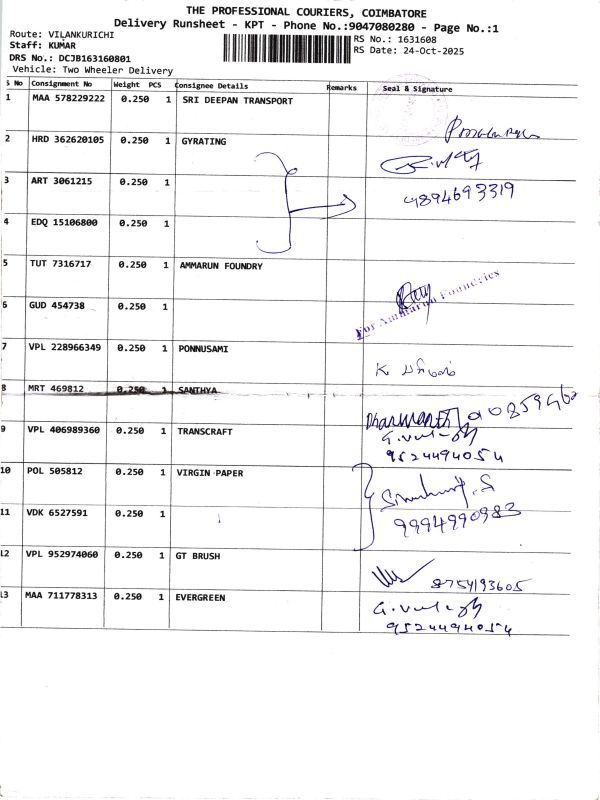 THE PROFESSIONAL COURIERS, COIMBATORE
Delivery Runsheet - KPT - Phone No.:9047080280 - Page No.:1
Route: VILANKURICHI
RS No.: 1631608
Staff: KUMAR
RS Date: 24-Oct-2025
DRS No.: DCJB163160801
Vehicle: Two Wheeler Delivery
S No Consignment No Weight PCS Consignee Details Remarks Seal & Signature
1 MAA 578229222 0.250 1 SRI DEEPAN TRANSPORT
2 HRD 362620105 0.250 1 GYRATING
3 ART 3061215 0.250 1 9894693319
4 EDQ 15106800 0.250 1
5 TUT 7316717 0.250 1 AMMARUN FOUNDRY
For Ammarun Foundries
6 GUD 454738 0.250 1
7 VPL 228966349 0.250 1 PONNUSAMI
K
8 MRT 469812 0.250 1 SANTHYA
9 VPL 406989360 0.250 1 TRANSCRAFT
9524494054
10 POL 505812 0.250 1 VIRGIN PAPER
11 VDK 6527591 0.250 1 9994990983
12 VPL 952974060 0.250 1 GT BRUSH
8754193605
13 MAA 711778313 0.250 1 EVERGREEN
9524494054